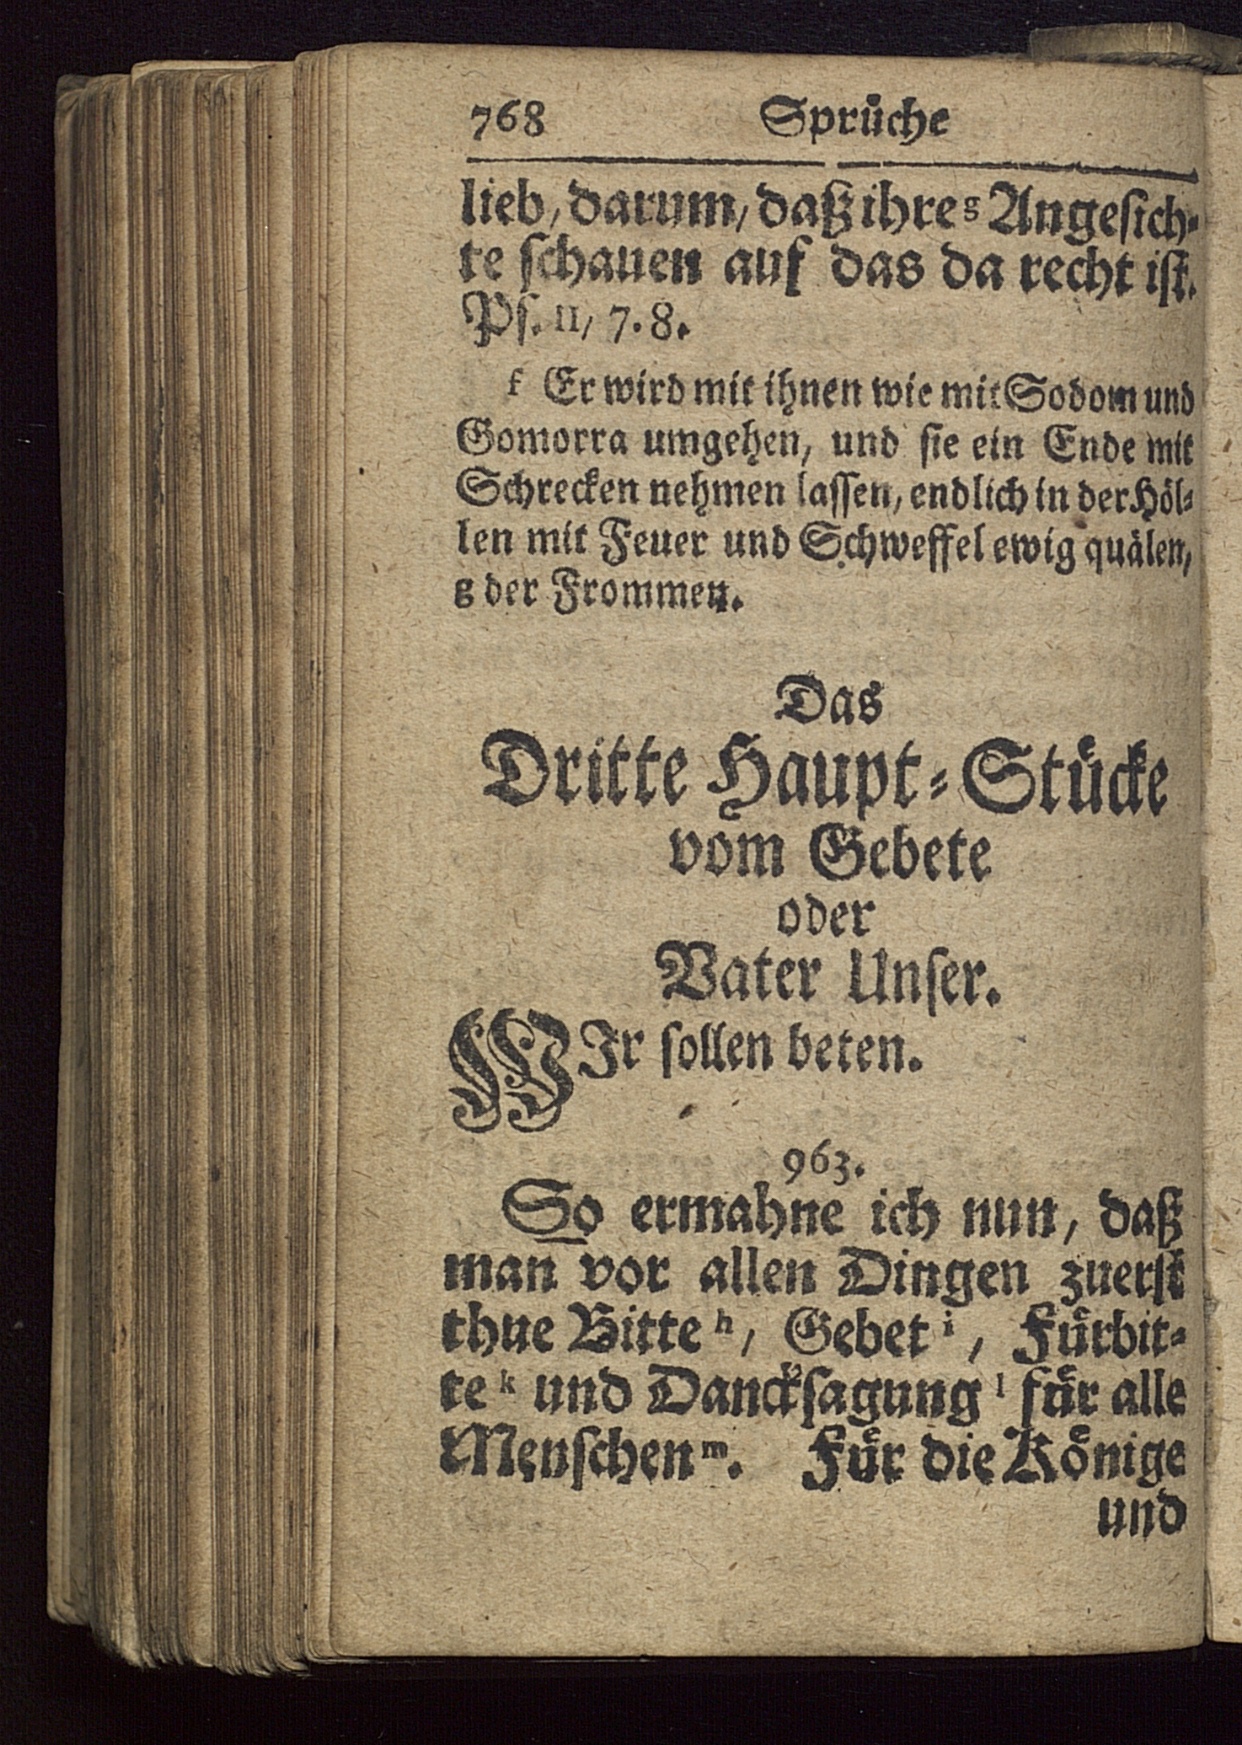 768 Sprüche
lieb, darum, daß ihre g Angesich-
te schauen auf das da recht ist.
Ps. 11, 7. 8.
f Er wird mit ihnen wie mit Sodom und
Gomorra umgehen, und sie ein Ende mit
Schrecken nehmen lassen, endlich in der Höl-
len mit Feuer und Schweffel ewig quälen,
g der Frommen.
Das
Dritte Haupt-Stücke
vom Gebete
oder
Vater Unser.
WIr sollen beten.
963.
So ermahne ich nun, daß
man vor allen Dingen zuerst
thue Bitte h, Gebet i, Fürbit-
te k und Dancksagung l für alle
Menschen m. Für die Könige
und